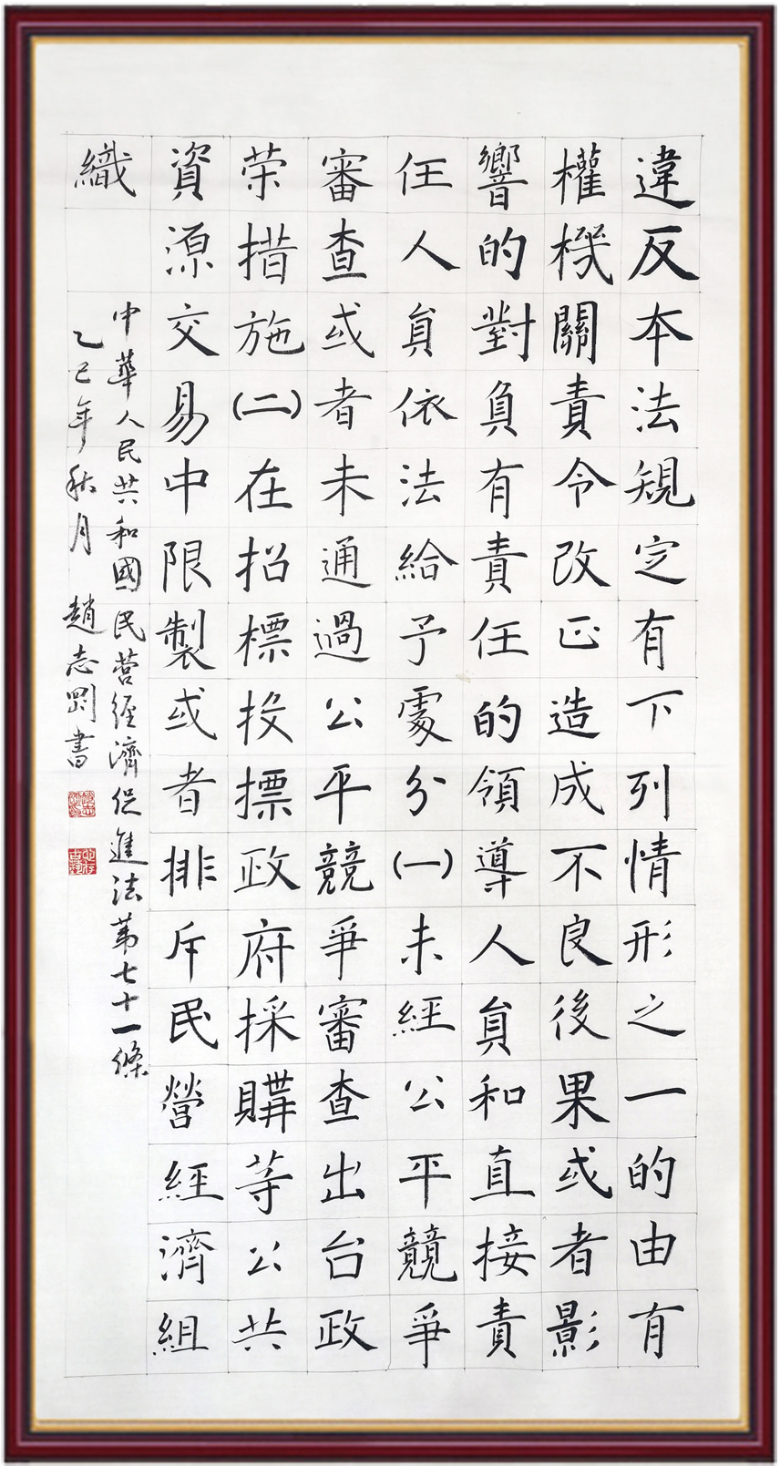 違反本法規定有下列情形之一的由有
權機關責令改正造成不良後果或者影
響的對負有責任的領導人員和直接責
任人員依法給予處分(一)未經公平競爭
審查或者未通過公平競爭審查出台政
荣措施(二)在招標投標政府採購等公共
資源交易中限製或者排斥民營經濟組
織
中華人民共和國民营經濟促進法第七十一條
乙巳年秋月 趙志剛書